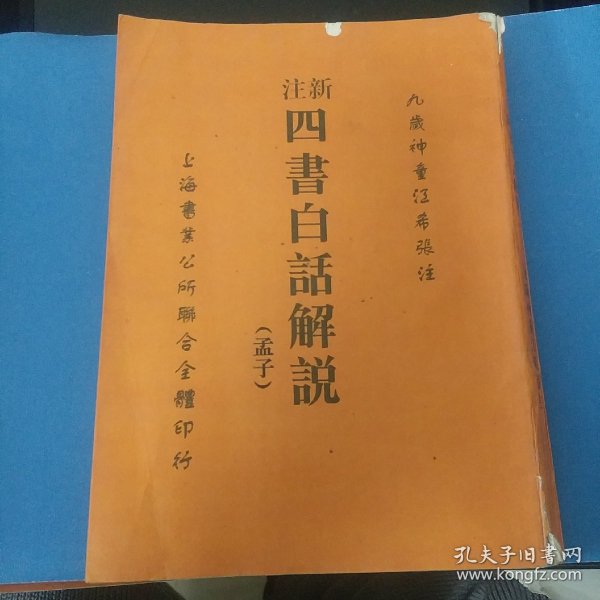 九歲神童江希張注
新注
四書白話解説
（孟子）
上海書業公所聯合全體印行
孔夫子旧书网
www.kongfz.com